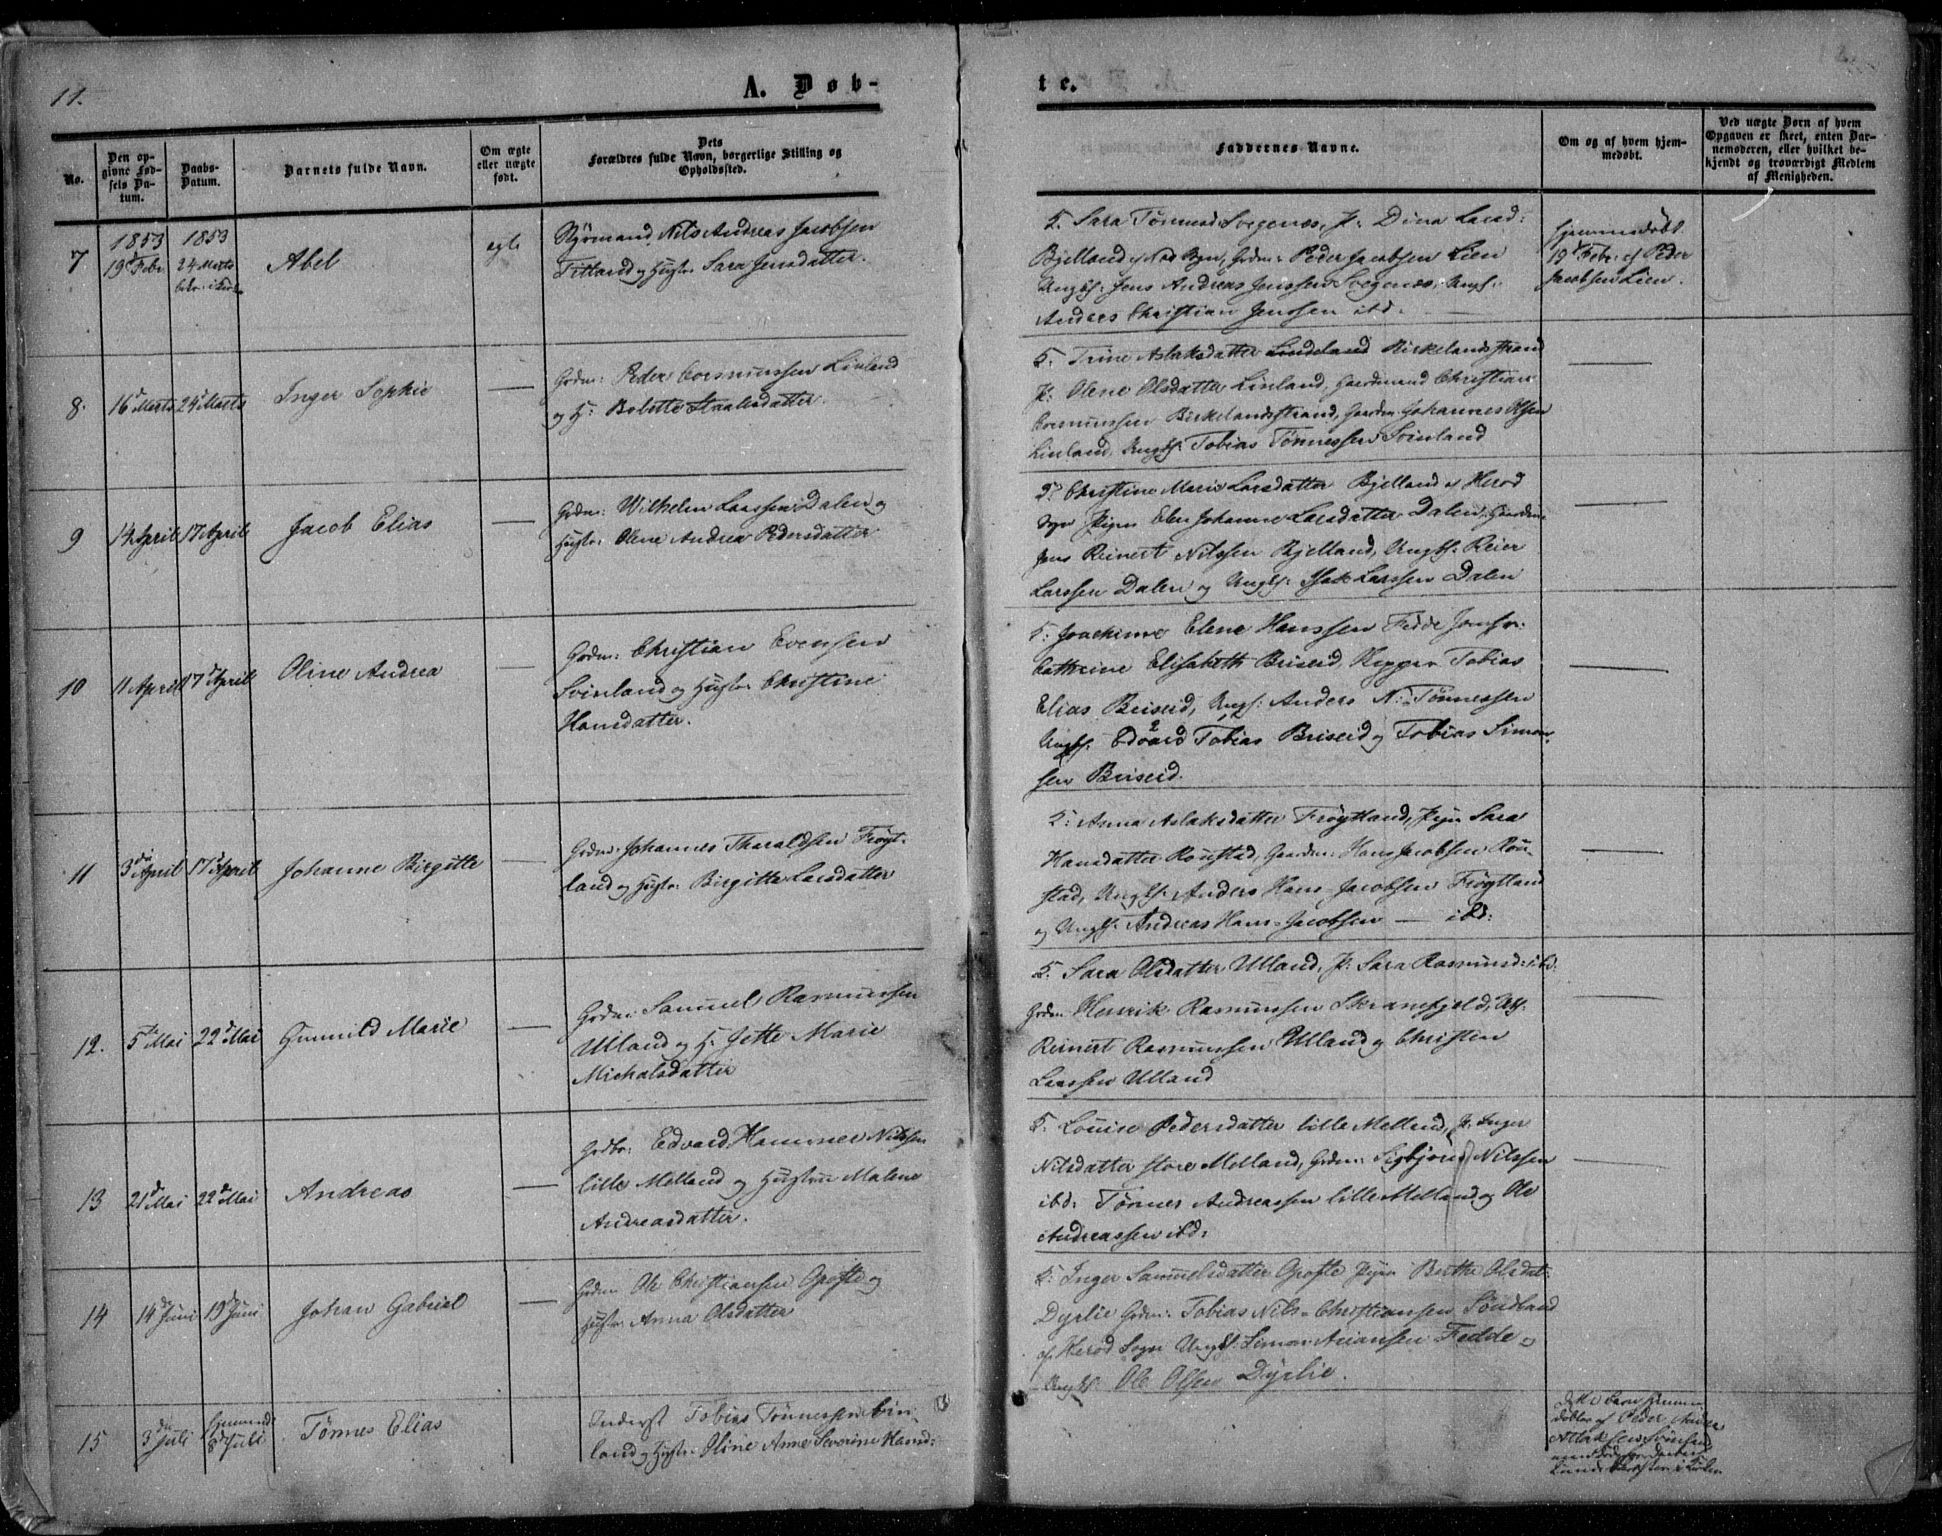 11.
A. Døb-
te.
No.
Den op-
givne Fød-
sels Da-
tum.
Daabs-
Datum.
Barnets fulde Navn.
Om ægte
eller uægte
født.
Dets
Forældres fulde Navn, borgerlige Stilling og
Opholdssted.
Faddernes Navne.
Om og af hvem hjem-
medøbt.
Ved uægte Børn af hvem
Opgaven er skeet, enten Bar-
nemoderen, eller hvilket be-
kjendt og troværdigt Medlem
af Menigheden.
7
1853
19d Febr
1853
24 Marts
bekr. i Kirke
Abel
egte
Styrmand Nils Andreas Jacobsen
Fitland og Hustr. Sara Jensdatter.
F. Sara Tønnesd. Svegenæs, P: Dina Larsd:
Bjelland, Gdm: Peder Jacobsen Lien
Ungks: Jens Andreas Jenssen Svegenæs, Ungk:
Anders Christian Jenssen ibd.
Hjemmedøbt
19d Febr: af Peder
Jacobsen Lien.
8.
16d Marts
24d Marts
Inger Sophie
—
Grdm: Peder Corneliussen Linland
og H: Bolette Staalesdatter.
F. Trine Aslaksdatter Lindeland Birkelandsstrand
P: Olene Olsdatter Linland, Gaardmand Christian
Birkelandsstrand, Gaardm. Johannes Olsen
Linland, Ungks: Tobias Tønnessen Svinland
—
9
14 April
17 April
Jacob Elias
—
Grdm: Wilhelm Larssen Dalen og
Hustr: Olene Andrea Pedersdatter
F. Christine Marie Larsdatter Bjelland af Herod
Sogn Pigen Elen Johanne Larsdatter Dalen, Gaardm
Jens Reinert Nilssen Bjelland, Ungks: Reier
Larssen Dalen og Ungks: Isak Larssen Dalen
—
10
11 April
17d April
Oline Andrea
—
Grdm: Christian Evensen
Svinland og Hustr. Christine
Hansdatter.
F: Joachime Elene Hanssen Fedde Jomfr:
Cathrine Elisabeth Briseid, Skipper Tobias
Elias Briseid, Ungk: Anders N. Tønnessen
Ungks: Edvard Tobias Briseid og Tobias Simon-
sen Briseid.
—
11
3die April
17d April
Johanne Birgitte
—
Grdm: Johannes Tharaldsen Frøyt-
land og Hustr. Birgitte Larsdatter
F: Anna Aslaksdatter Frøytland, Pigen Sara
Hansdatter Roustad, Gaardm: Hans Jacobsen Rou-
stad, Ungks: Anders Hans-Jacobsen Frøytland
og Ungks: Andreas Hans-Jacobsen — ibd:
—
12.
5te Mai
22d Mai
Gunnild Marie
—
Grdm: Samuel Rasmussen
Ulland og H: Jette Marie
Michalsdatter
F: Sara Olsdatter Ulland, P: Sara Rasmusd: ibd:
Grdm: Henrik Rasmussen Skranefjeld, Ungk:
Reinert Rasmussen Ulland og Christen
Larssen Ulland
—
13
21d Mai
22d Mai
Andreas
—
Grdbr: Edvard Hammer Nilssen
lille Melland og Hustru Malene
Andreasdatter.
F. Louise Pedersdatter lille Melland, P. Inger
Nilsdatter store Melland, Grdm: Sigbjørn Nilssen
ibd: Tønnes Andreassen lille Melland og Ole
Andreassen ibd:
—
14
14d Juni
19d Juni
Johan Gabriel
—
Grdm Ole Christiansen Opofte og
Hustr. Anna Olsdatter
F: Inger Samuelsdatter Opofte Pigen Berthe Olsdat:
Dyrlie Grdm: Tobias Nils-Christiansen Søndland
af Herod Sogn Ungk: Simon Fedde og
Ungks Ole Olsen Dyrlie.
15
3die Juli
Hjemmed:
8d Juli
Tønnes Elias
Inderst Tobias Tønnessen Lin-
land og Hustr. Oline Anne Severine Hansd:
dette Barn hjemme-
døbtes af Peder